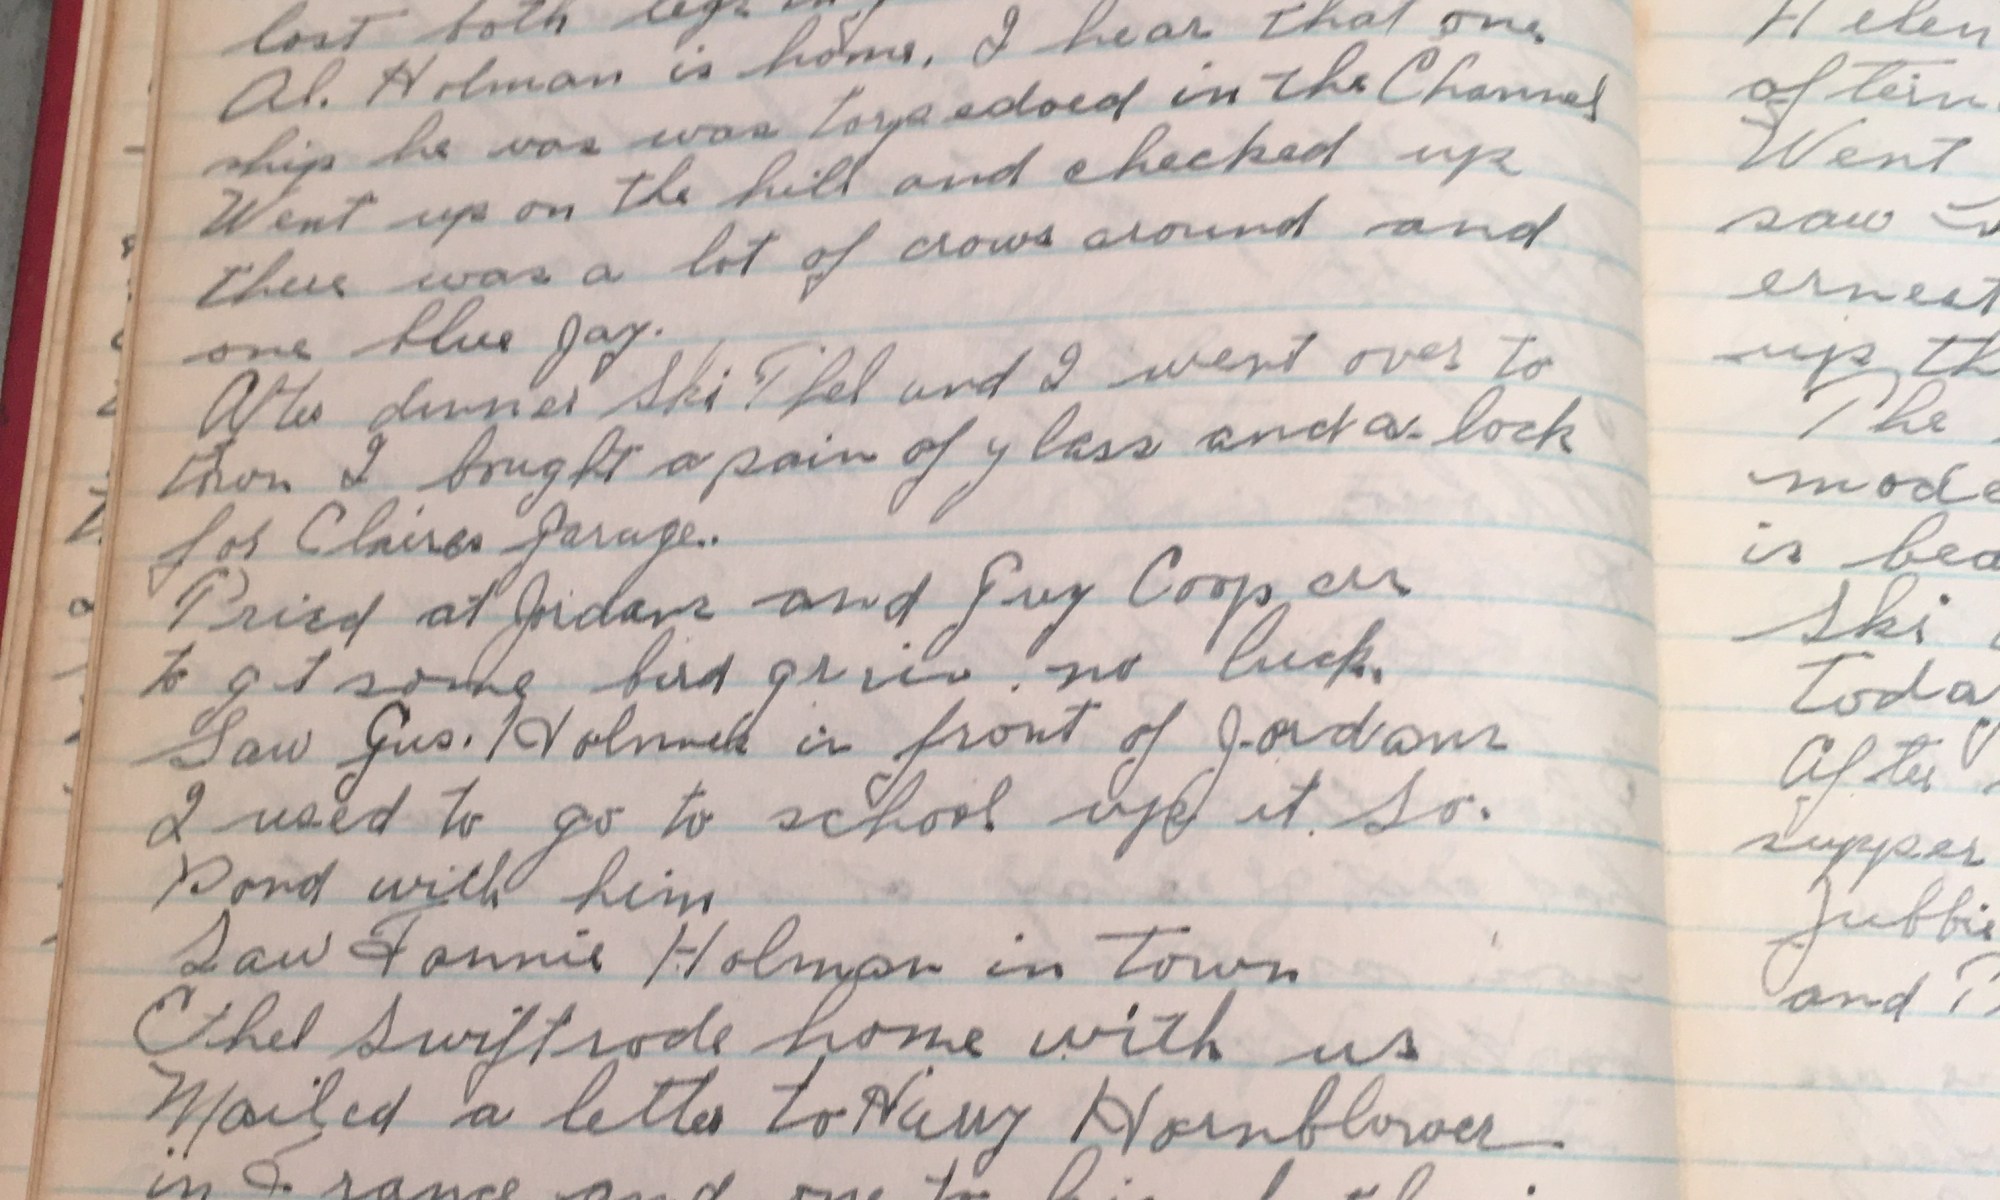 lost both legs in
Al. Holman is home, I hear that one
ship he was was torpedoed in the Channel
Went up on the hill and checked up
there was a lot of crows around and
one blue Jay.
After dinner Ski Thel and I went over to
town I bought a pain of glass and a lock
for Claires Garage.
Tried at Jordans and Guy Coopers
to get some bird grain. no luck.
Saw Gus. in front of Jordans
I used to go to school up it So.
Pond with him
Saw Fannie Holman in town
Ethel Swift rode home with us
Mailed a letter to Harry Hornblower
in France and one to his
Helen
aftern
Went
saw
ernest
up th
The
mode
is bea
Ski
toda
After
supper
Jubbie
and